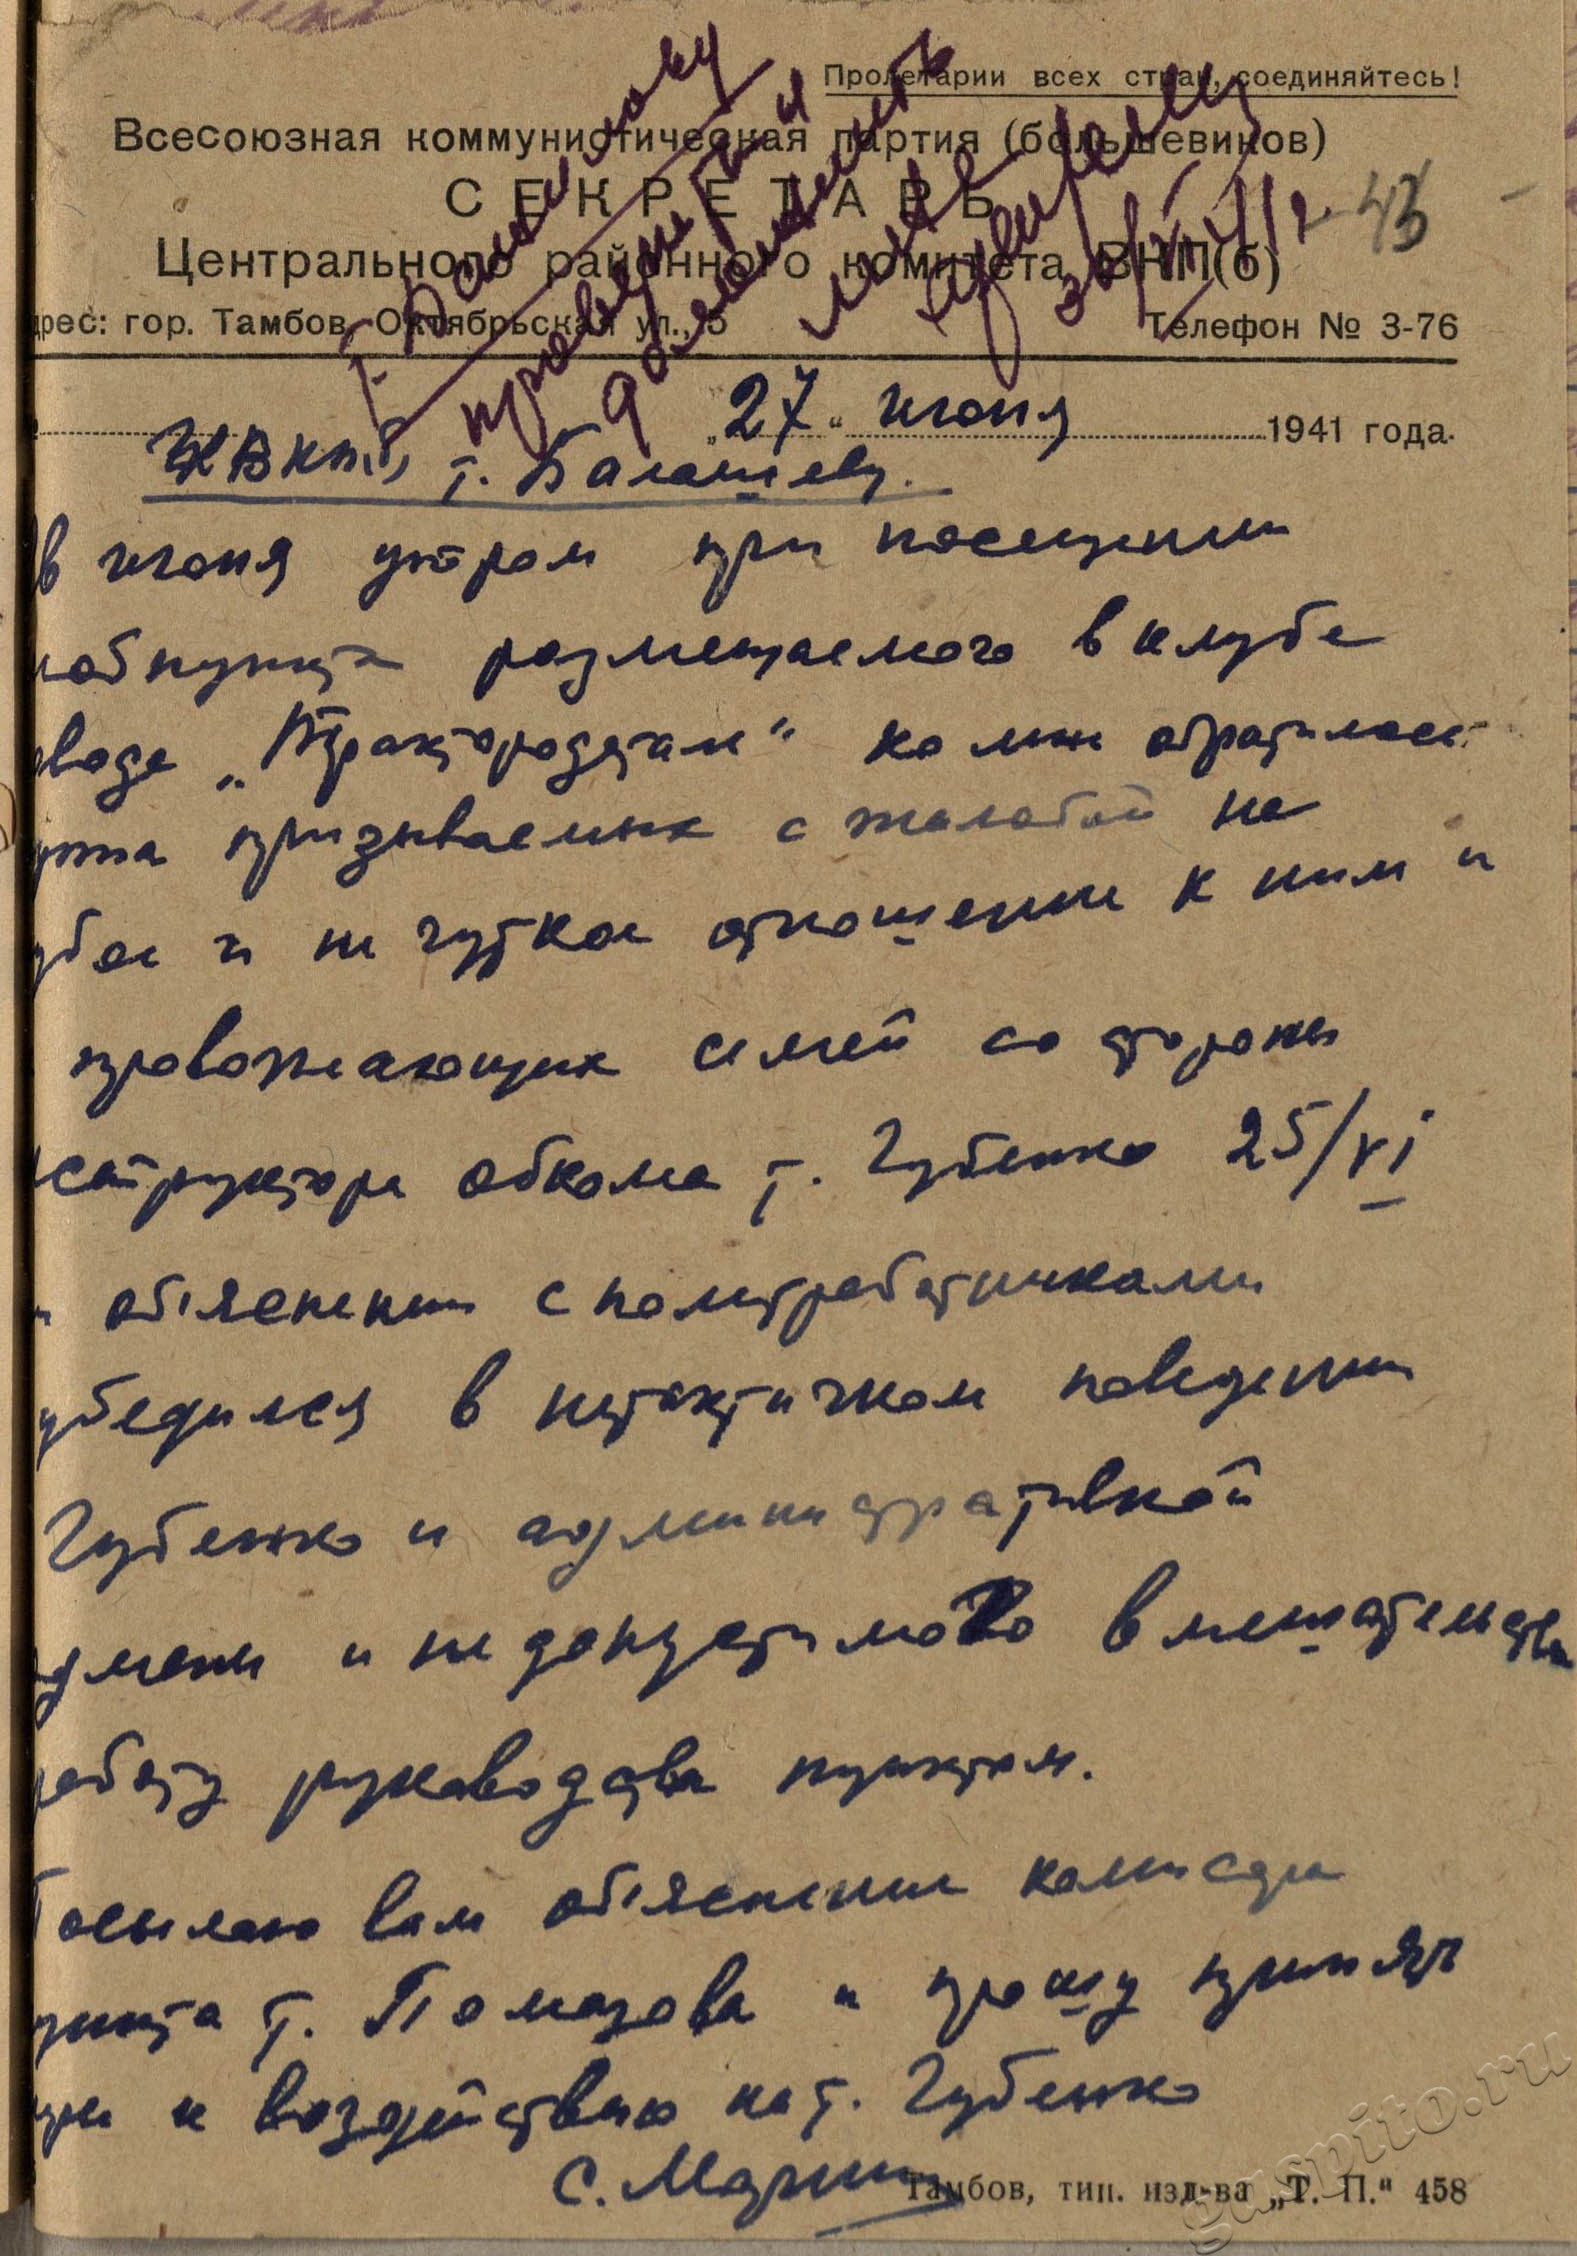 Пролетарии всех стран, соединяйтесь!
Всесоюзная коммунистическая партия (большевиков)
СЕКРЕТАРЬ
Центрального районного комитета ВКП(б)
43
дрес: гор. Тамбов, Октябрьская ул., 5 Телефон № 3-76
проверить и
доложить
мне
„27“ июня 1941 года.
т. Балашеву.
июня утром при посещении
обпункта размещаемого в клубе
вода „Трактородетали“ ко мне обратилась
уппа призываемых с жалобой на
убое и не чуткое отношение к ним и
провожающих семей со стороны
структора обкома т. Губенко 25/VI
объяснении с политработниками
убедился в нетактичном поведении
Губенко и административной
и не допустимого вмешательства
работу руководства пунктом.
Посылаю вам объяснение комиссара
ункта т. Помазова и прошу принять
ры к воздействию на т. Губенко
С.
Тамбов, тип. изд-ва „Т. П.“ 458
gaspito.ru